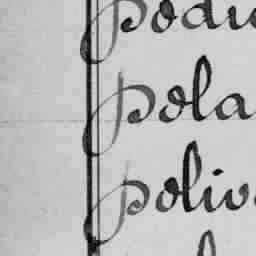 podu
pola
poliv